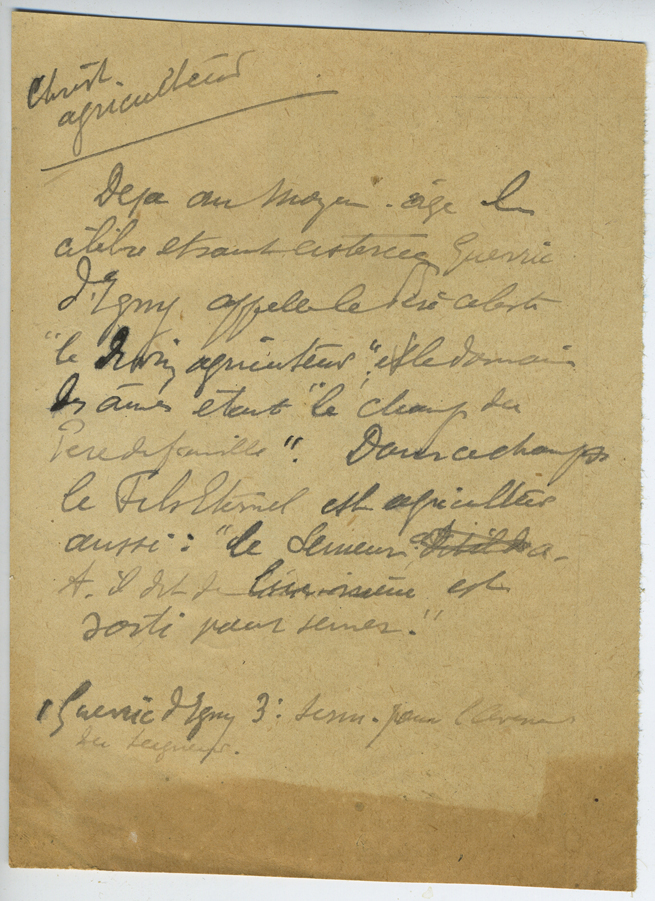 Christ
agriculteur
Déja au Moyen-age le
célèbre et saint cistercien Guerric
d'Igny appelle le Père céleste
"le divin agriculteur", et le domaine
des âmes étant "le champ du
Père de famille". Dans ce champs
le Fils Eternel est agriculteur
aussi: "le Semeur a-
t-il dit de lui-même est
sorti pour semer."
Guerric d'Igny 3: serm. pour l'Avent
du Seigneur.